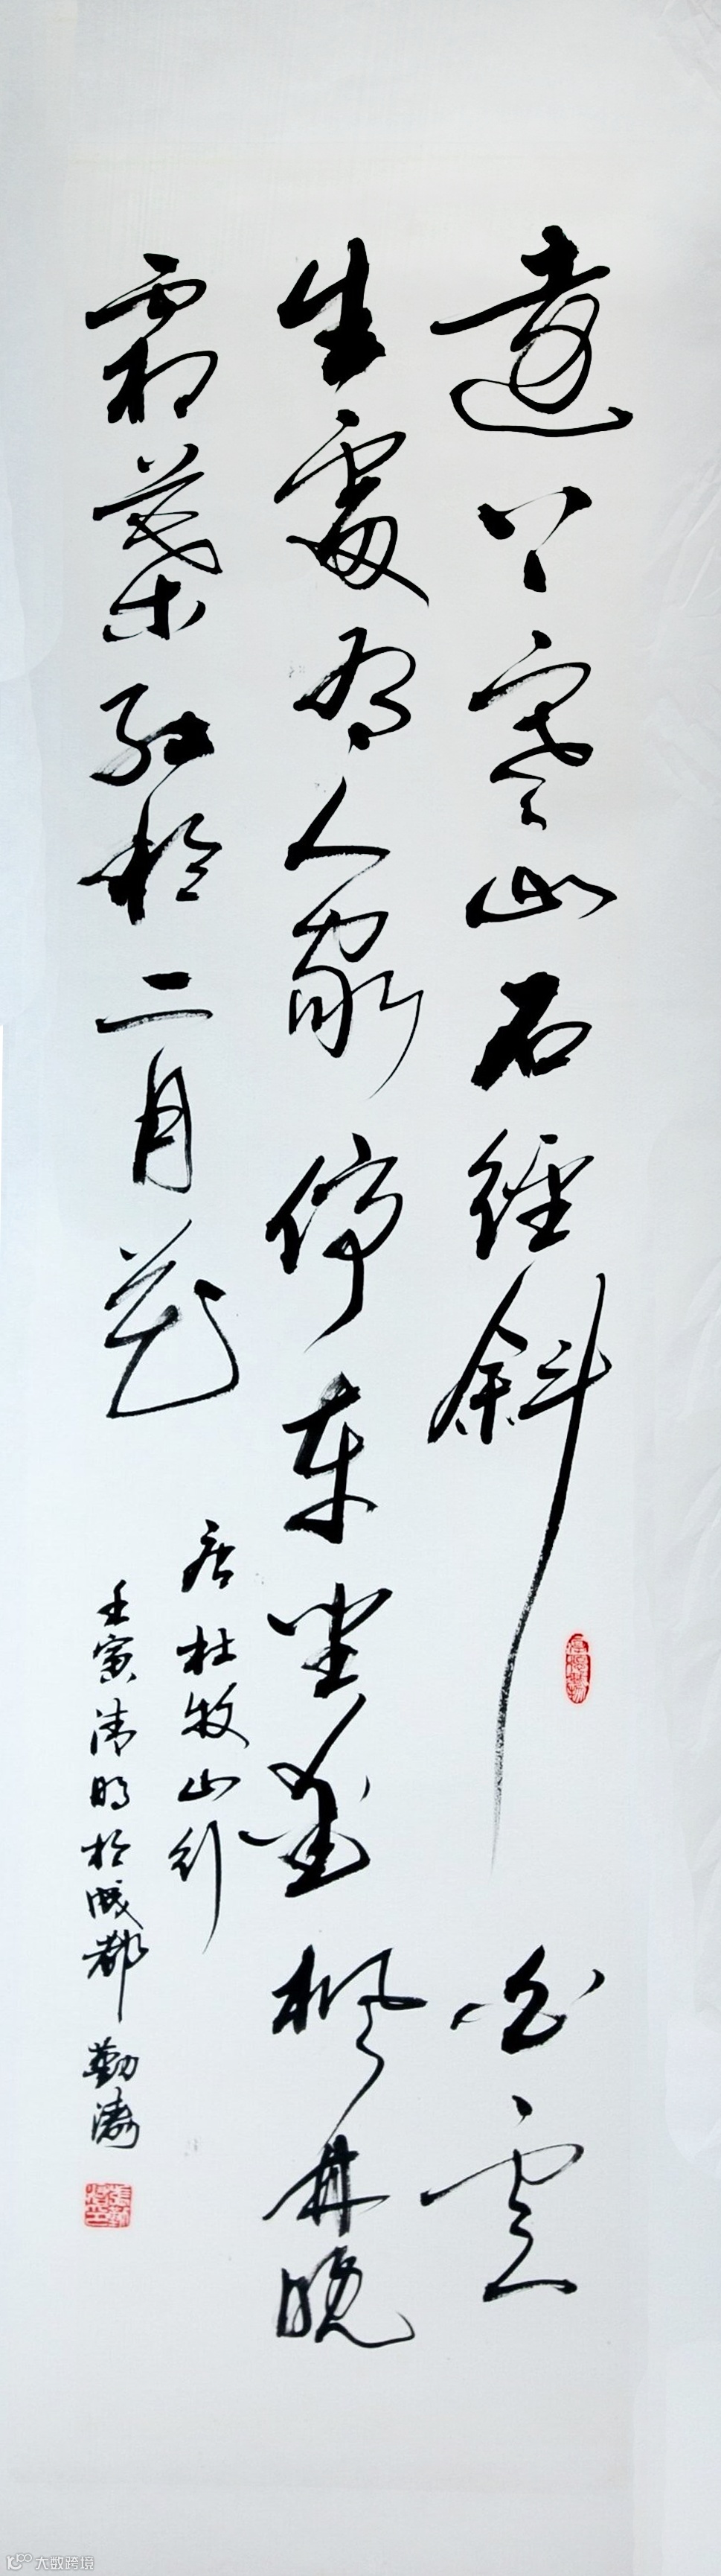 遠上寒山石徑斜白雲
生處有人家停車坐愛楓林晚
霜葉紅於二月花
唐杜牧山行
壬寅清明於成都 勤濤
大数跨境